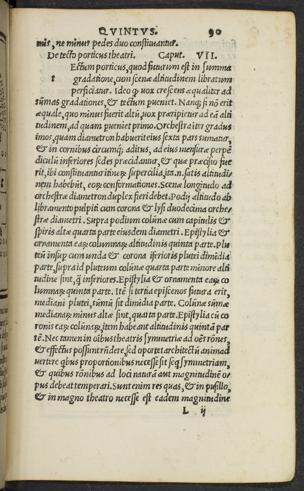 QVINTVS. 90
nis, ne minus pedes duo constituantur.
De tecto porticus theatri. Caput. VII.
t Ectum porticus, quod futurum est in summa
gradatione, cum scenæ altitudinem libratum
perficiatur. Ideo ꝙ vox crescens æqualiter ad
summas gradationes, & tectum pueniet. Nanq; si nõ erit
æquale, quo minus fuerit altũ, vox præripietur ad eã alti
tudinem, ad quam pueniet primo. Orchestra iter gradus
imos, quam diametron habuerit eius sexta pars sumatur,
& in cornibus circumq; aditus, ad eius mensuræ perpẽ
diculũ inferiores sedes præcidantur, & que præcisio fue
rit, ibi constituantur itinerũ supercilia, ita.n. satis altitudi
nem habebũt, eorũ conformationes. Scenæ longitudo ad
orchestræ diametron duplex fieri debet. Podij altitudo ab
libramento pulpiti cum corona & lysi duodecima orche
stræ diametri. Supra podium colũnæ cum capitulis &
spiris altæ quarta parte eiusdem diametri. Epistylia &
ornamenta earũ columnarũ altitudinis quinta parte. Plu
teũ insup cum unda & corona iferioris plutei dimidia
parte, supra id pluteum colũnæ quarta parte minore alti
tudine sint, q̃ inferiores. Epistylia & ornamenta earũ co
lumnarũ quinta parte. Itẽ si tertia episcenos futura erit,
mediani plutei, sũmũ sit dimidia parte. Colũnæ sũmæ
medianarũ minus altæ sint, quarta parte. Epistylia cũ co
ronis earũ colũnarũ, item habeant altitudinis quintã par
tẽ. Nec tamen in oĩbus theatris symmetriæ ad oẽs rõnes,
& effectus possunt rñdere, sed oportet architectũ animad
uertere qbus proportionibus necesse sit seq symmetriam,
& quibus rõnibus ad loci naturã aut magnitudinẽ o/
pus debeat temperari. Sunt enim res quas, & in pusillo,
& in magno theatro necesse est eadem magnitudine
L ij